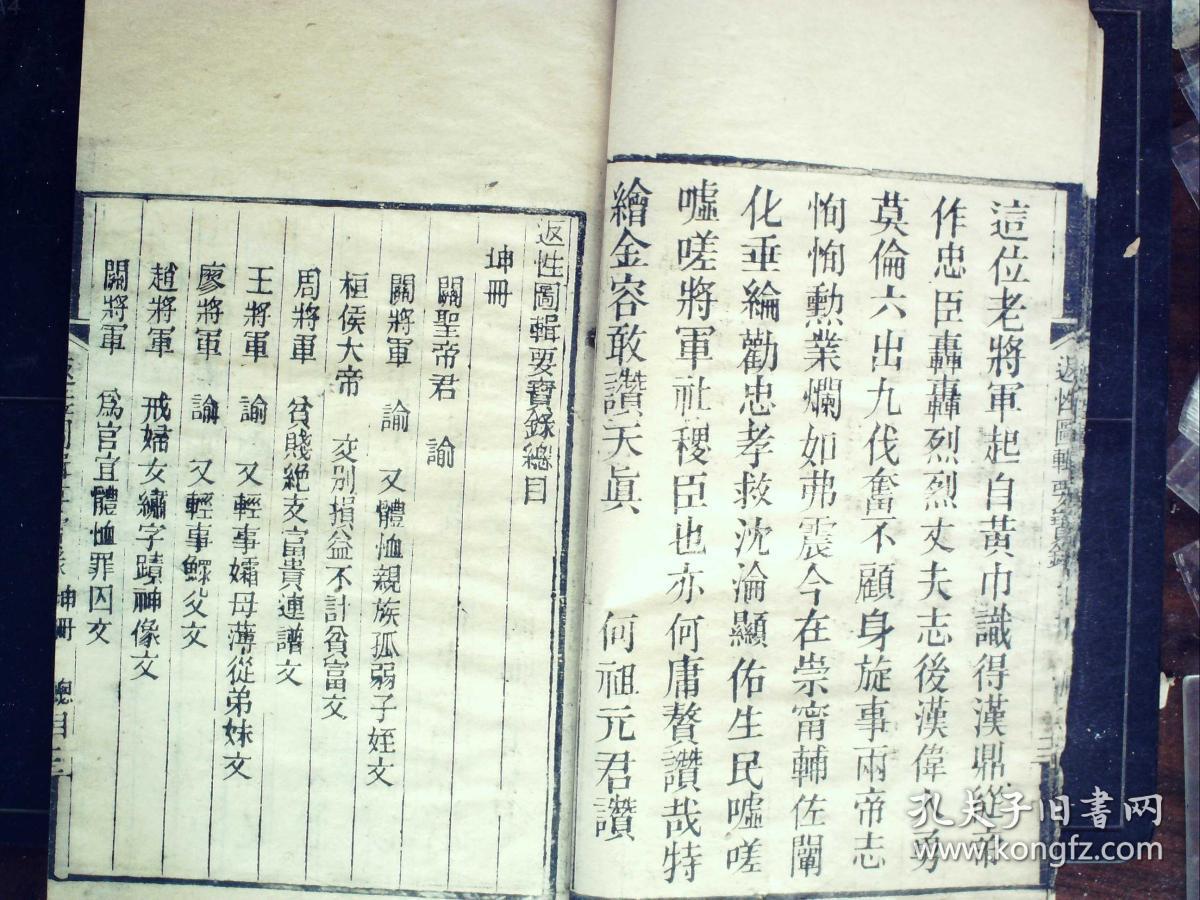 這位老將軍起自黃巾識得漢鼎
作忠臣轟轟烈烈丈夫志後漢偉人勇
莫倫六出九伐奮不顧身旋事兩帝志
恂恂勳業爛如弗震今在崇甯輔佐闡
化垂綸勸忠孝救沈淪顯佑生民噓嗟
噓嗟將軍社稷臣也亦何庸贅讚哉特
繪金容敢讚天眞 何祖元君讚
返性圖輯要寶錄總目
坤冊
關聖帝君 諭
關將軍 諭 又體恤親族孤弱子姪文
桓侯大帝 交別損益不計貧富文
周將軍 貧賤絕交富貴連譜文
王將軍 諭 又輕事孀母薄從弟妹文
廖將軍 諭 又輕事鰥父文
趙將軍 戒婦女繡字蹟神像文
關將軍 爲官宜體恤罪囚文
坤冊 總目
返性圖輯要寶錄
孔夫子旧书网
www.kongfz.com